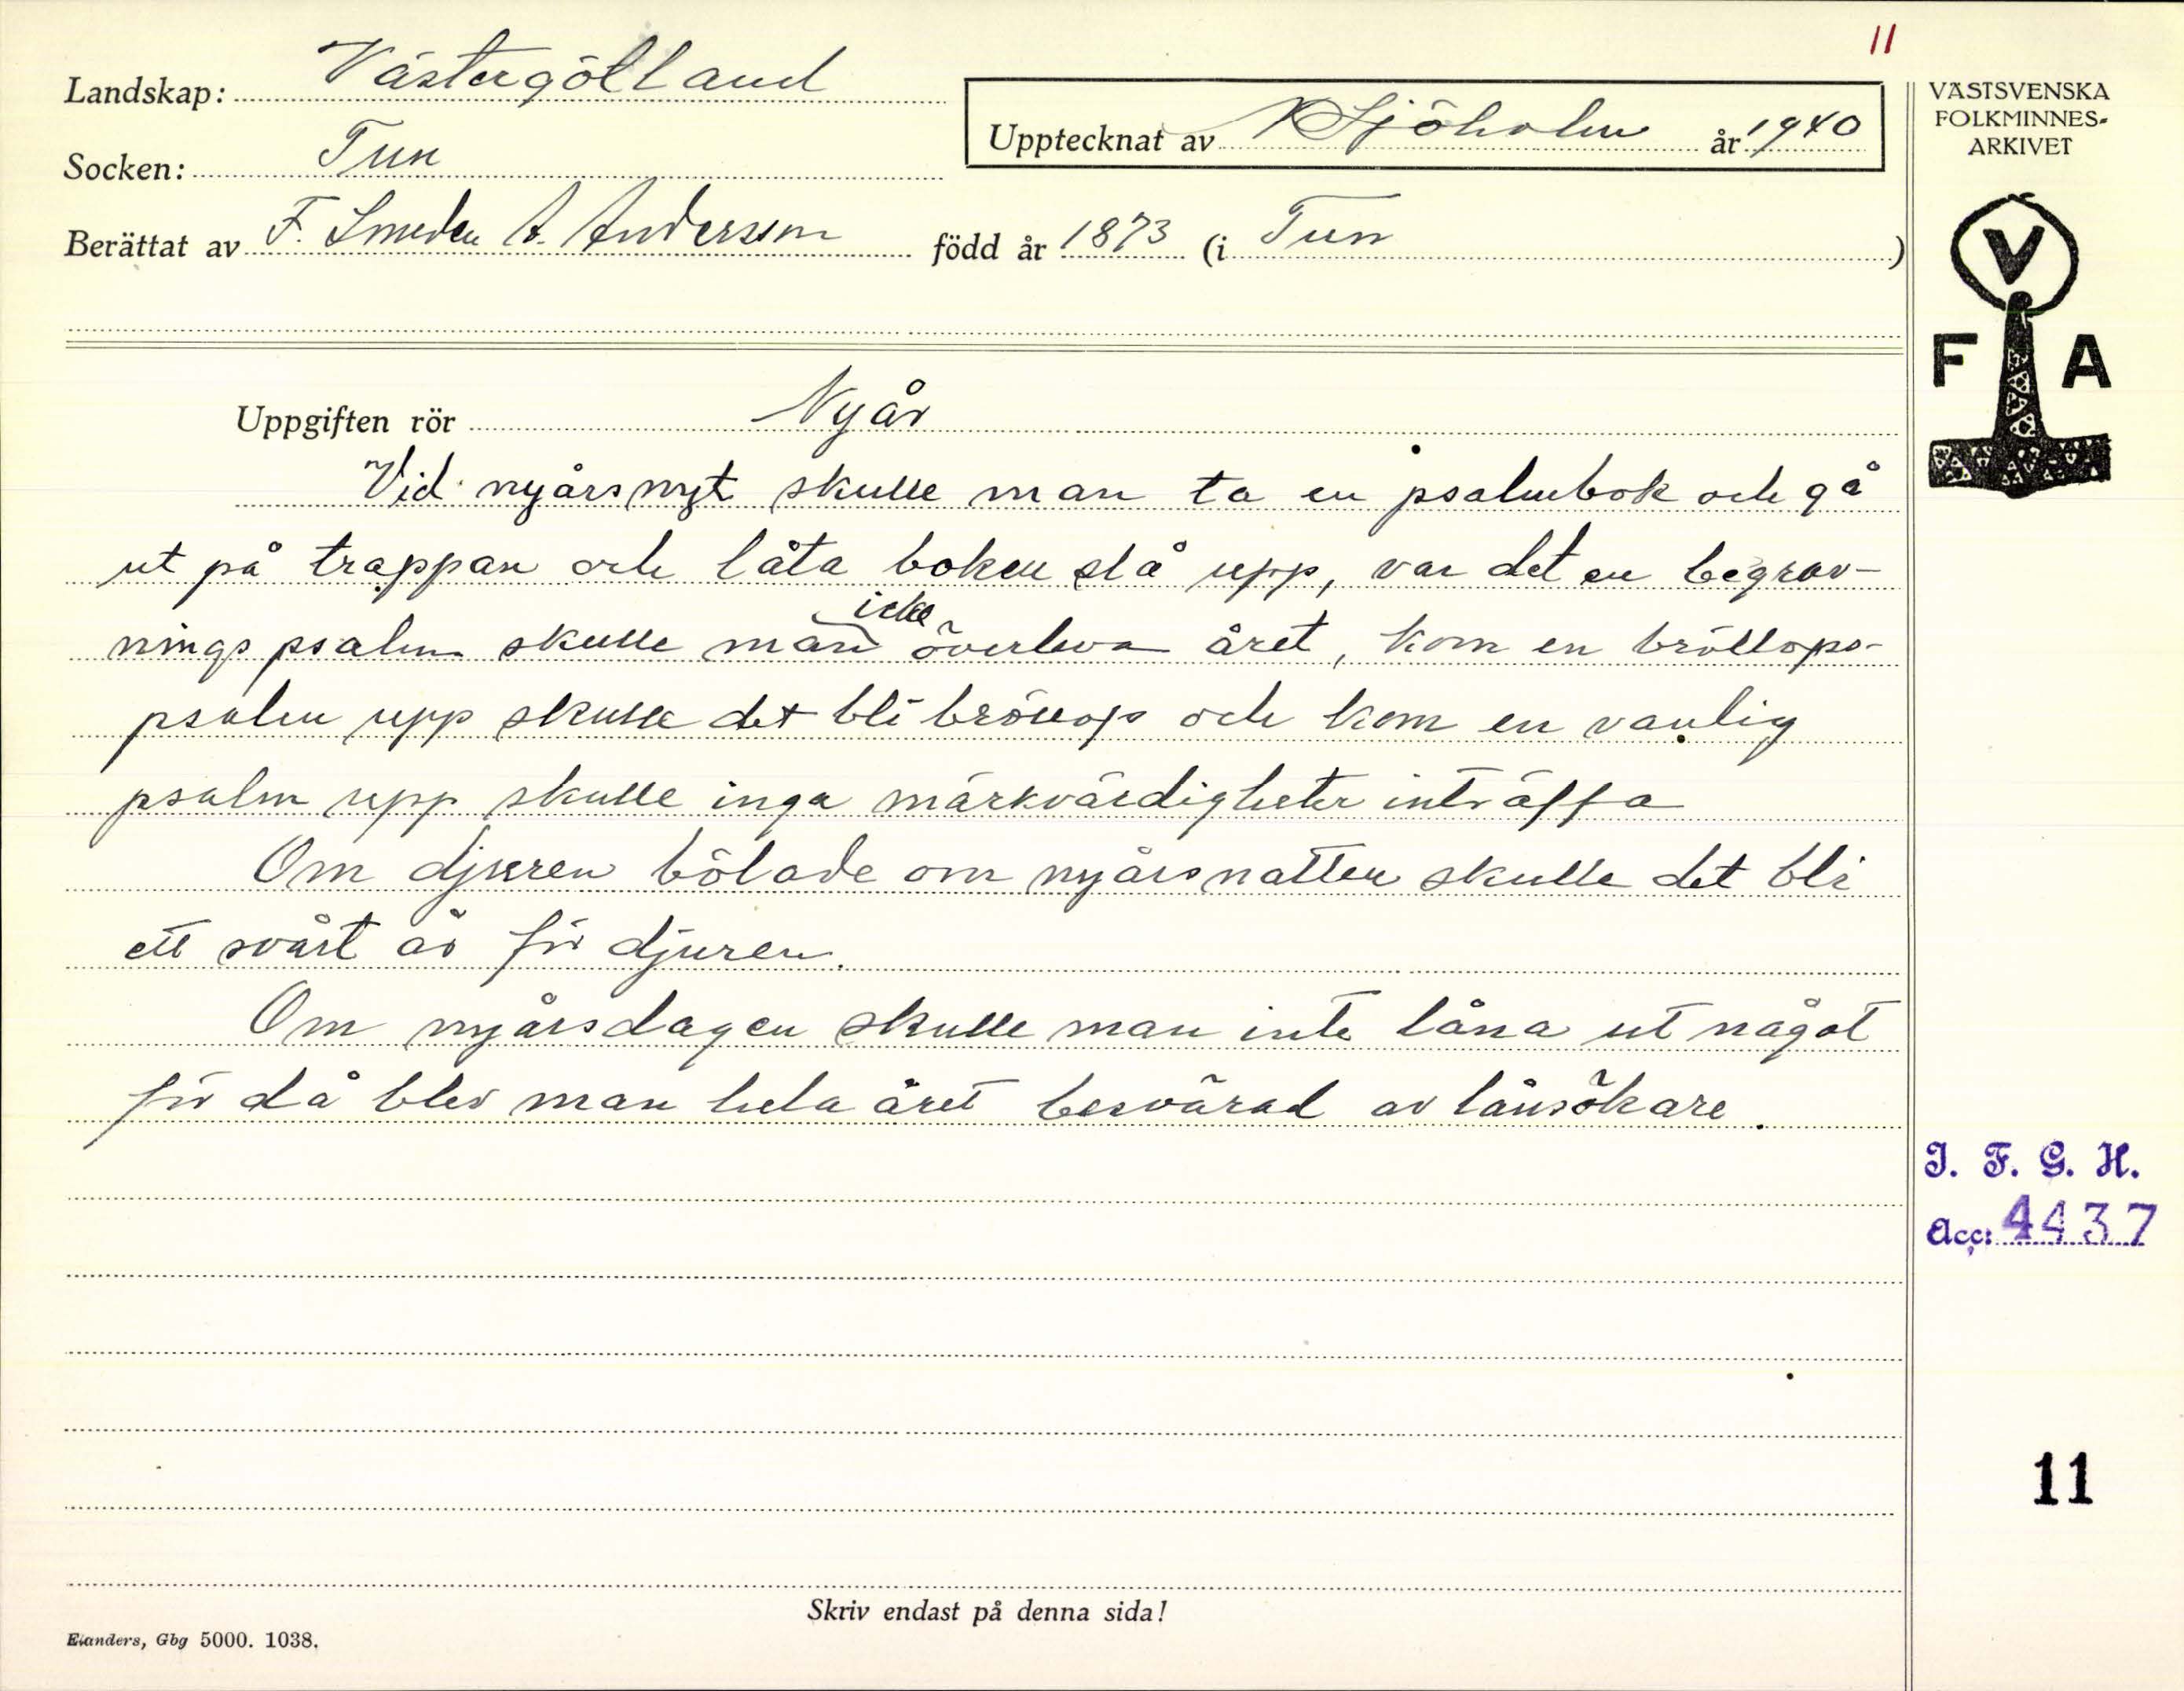 11
Landskap: Västergötland
Socken: Tun
Upptecknat av K Sjöholm år 1940
Berättat av F. Smeden A. Andersson född år 1873 (i Tun)
VÄSTSVENSKA
FOLKMINNES-
ARKIVET
V
F A
Uppgiften rör Nyår
Vid nyårsnyt skulle man ta en psalmbok och gå
ut på trappan och låta boken slå upp, var det en begrav-
icke
ningspsalm skulle man överleva året, kom en bröllops-
psalm upp skulle det bli bröllop och kom en vanlig
psalm upp skulle inga märkvärdigheter inträffa
Om djuren bölade om nyårsnatten skulle det bli
ett svårt år för djuren.
Om nyårsdagen skulle man inte låna ut något
för då blev man hela året besvärad av lånsökare.
I. F. G. H.
Acc: 4437
11
Skriv endast på denna sida!
Elanders, Gbg 5000. 1038.